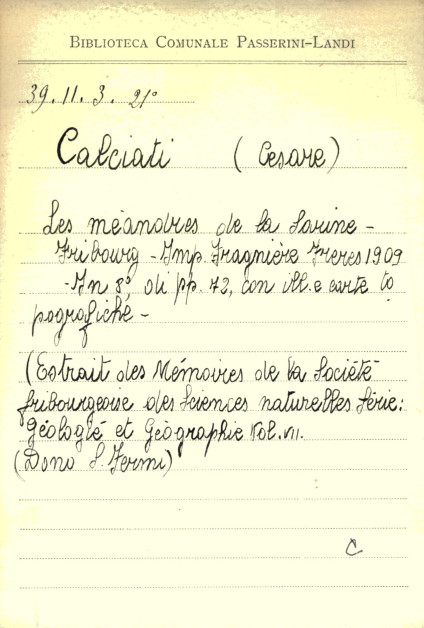 BIBLIOTECA COMUNALE PASSERINI-LANDI
39.11.3.21°
Calciati (Cesare)
Les méandres de la Sarine -
Fribourg - Imp. Fragnière Freres 1909
- In 8°, di pp. 72, con ill. e carte to
pografiche -
(Estrait des Mémoires de la Société
fribourgeoise des Sciences naturelles Série:
Géologie et Géographie Vol. VII.
(Dono S. Fermi)
C